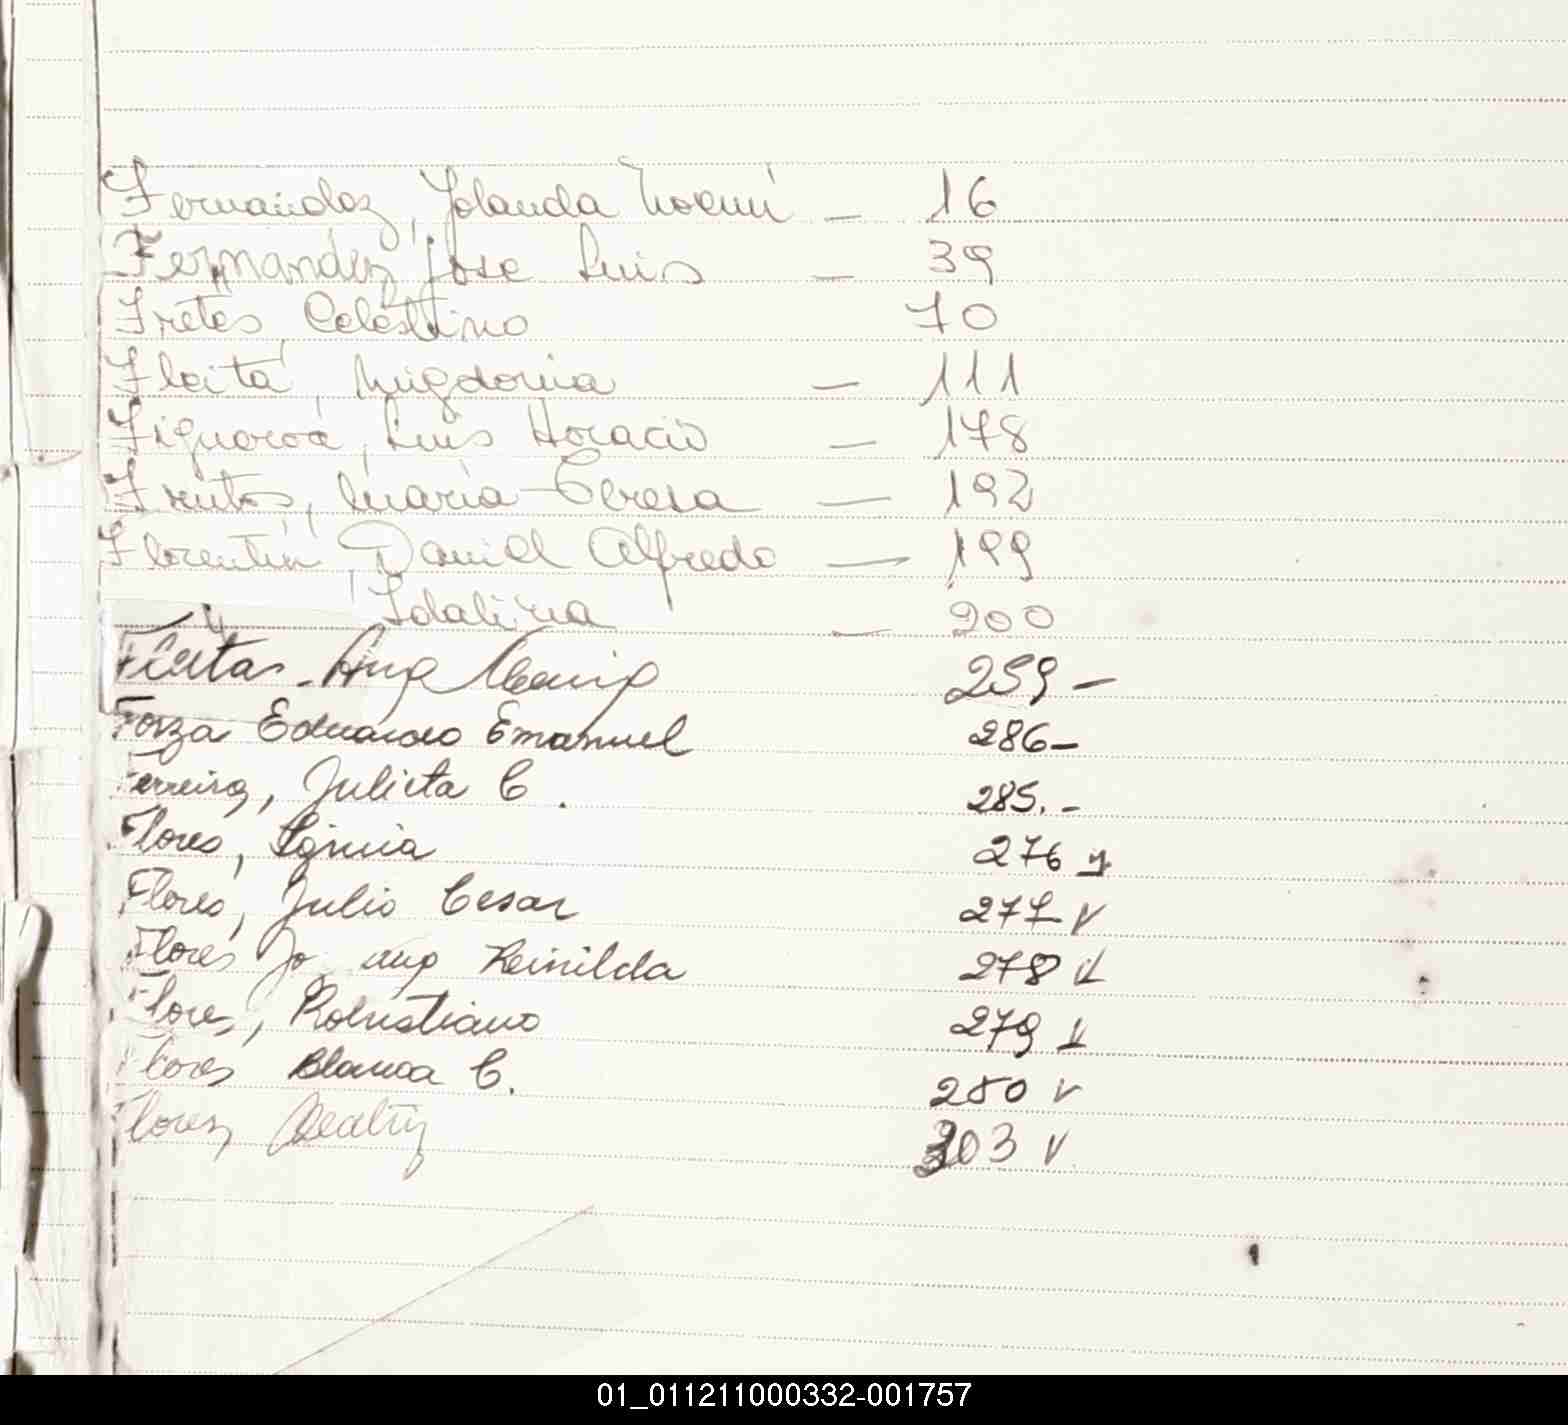 Fernandez, Yolanda Noemi — 16
Fernandez Jose Luis — 39
Fretes, Celestino 70
Fleita, Migdonia — 111
Figueroa, Luis Horacio — 178
Frutos, Maria Teresa — 192
Florentin, Daniel Alfredo — 199
Idalina — 200
Fleitas Ana Maria 259 –
Forza Eduardo Emanuel 286 –
Ferreira, Julieta C. 285. –
Flores, Iginia 276
Flores, Julio Cesar 277 v
Flores Reinilda 278
Flores, Robustiano 279
Flores Blanca C. 280 v
Flores, Beatriz 303 v
01_011211000332-001757